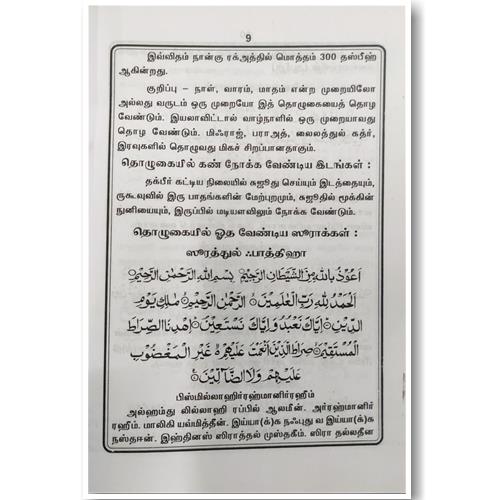 9
இவ்விதம் நான்கு ரக்அத்தில் மொத்தம் 300 தஸ்பீஹ்
ஆகின்றது.
குறிப்பு – நாள், வாரம், மாதம் என்ற முறையிலோ
அல்லது வருடம் ஒரு முறையோ இத் தொழுகையைத் தொழ
வேண்டும். இயலாவிட்டால் வாழ்நாளில் ஒரு முறையாவது
தொழ வேண்டும். மிஃராஜ், பராஅத், லைலத்துல் கத்ர்,
இரவுகளில் தொழுவது மிகச் சிறப்பானதாகும்.
தொழுகையில் கண் நோக்க வேண்டிய இடங்கள் :
தக்பீர் கட்டிய நிலையில் சுஜூது செய்யும் இடத்தையும்,
ருகூவுவில் இரு பாதங்களின் மேற்புறமும், சுஜூதில் மூக்கின்
நுனியையும், இருப்பில் மடியளவிலும் நோக்க வேண்டும்.
தொழுகையில் ஓத வேண்டிய ஸூராக்கள் :
ஸூரத்துல் ஃபாத்திஹா
اَعُوْذُ بِاللهِ مِنَ الشَّيْطَانِ الرَّجِيْمِ بِسْمِ اللهِ الرَّحْمٰنِ الرَّحِيْمِ
اَلْحَمْدُ لِلّٰهِ رَبِّ الْعٰلَمِيْنَ الرَّحْمٰنِ الرَّحِيْمِ مٰلِكِ يَوْمِ
الدِّيْنِ اِيَّاكَ نَعْبُدُ وَاِيَّاكَ نَسْتَعِيْنُ اِهْدِنَا الصِّرَاطَ
الْمُسْتَقِيْمَ صِرَاطَ الَّذِيْنَ اَنْعَمْتَ عَلَيْهِمْ غَيْرِ الْمَغْضُوْبِ
عَلَيْهِمْ وَلَا الضَّآلِّيْنَ
பிஸ்மில்லாஹிர்ரஹ்மானிர்ரஹீம்
அல்ஹம்து லில்லாஹி ரப்பில் ஆலமீன். அர்ரஹ்மானிர்
ரஹீம். மாலிகி யவ்மித்தீன். இய்யா(க்)க நஃபுது வ இய்யா(க்)க
நஸ்தஈன். இஹ்தினஸ் ஸிராத்தல் முஸ்தகீம். ஸிரா தல்லதீன